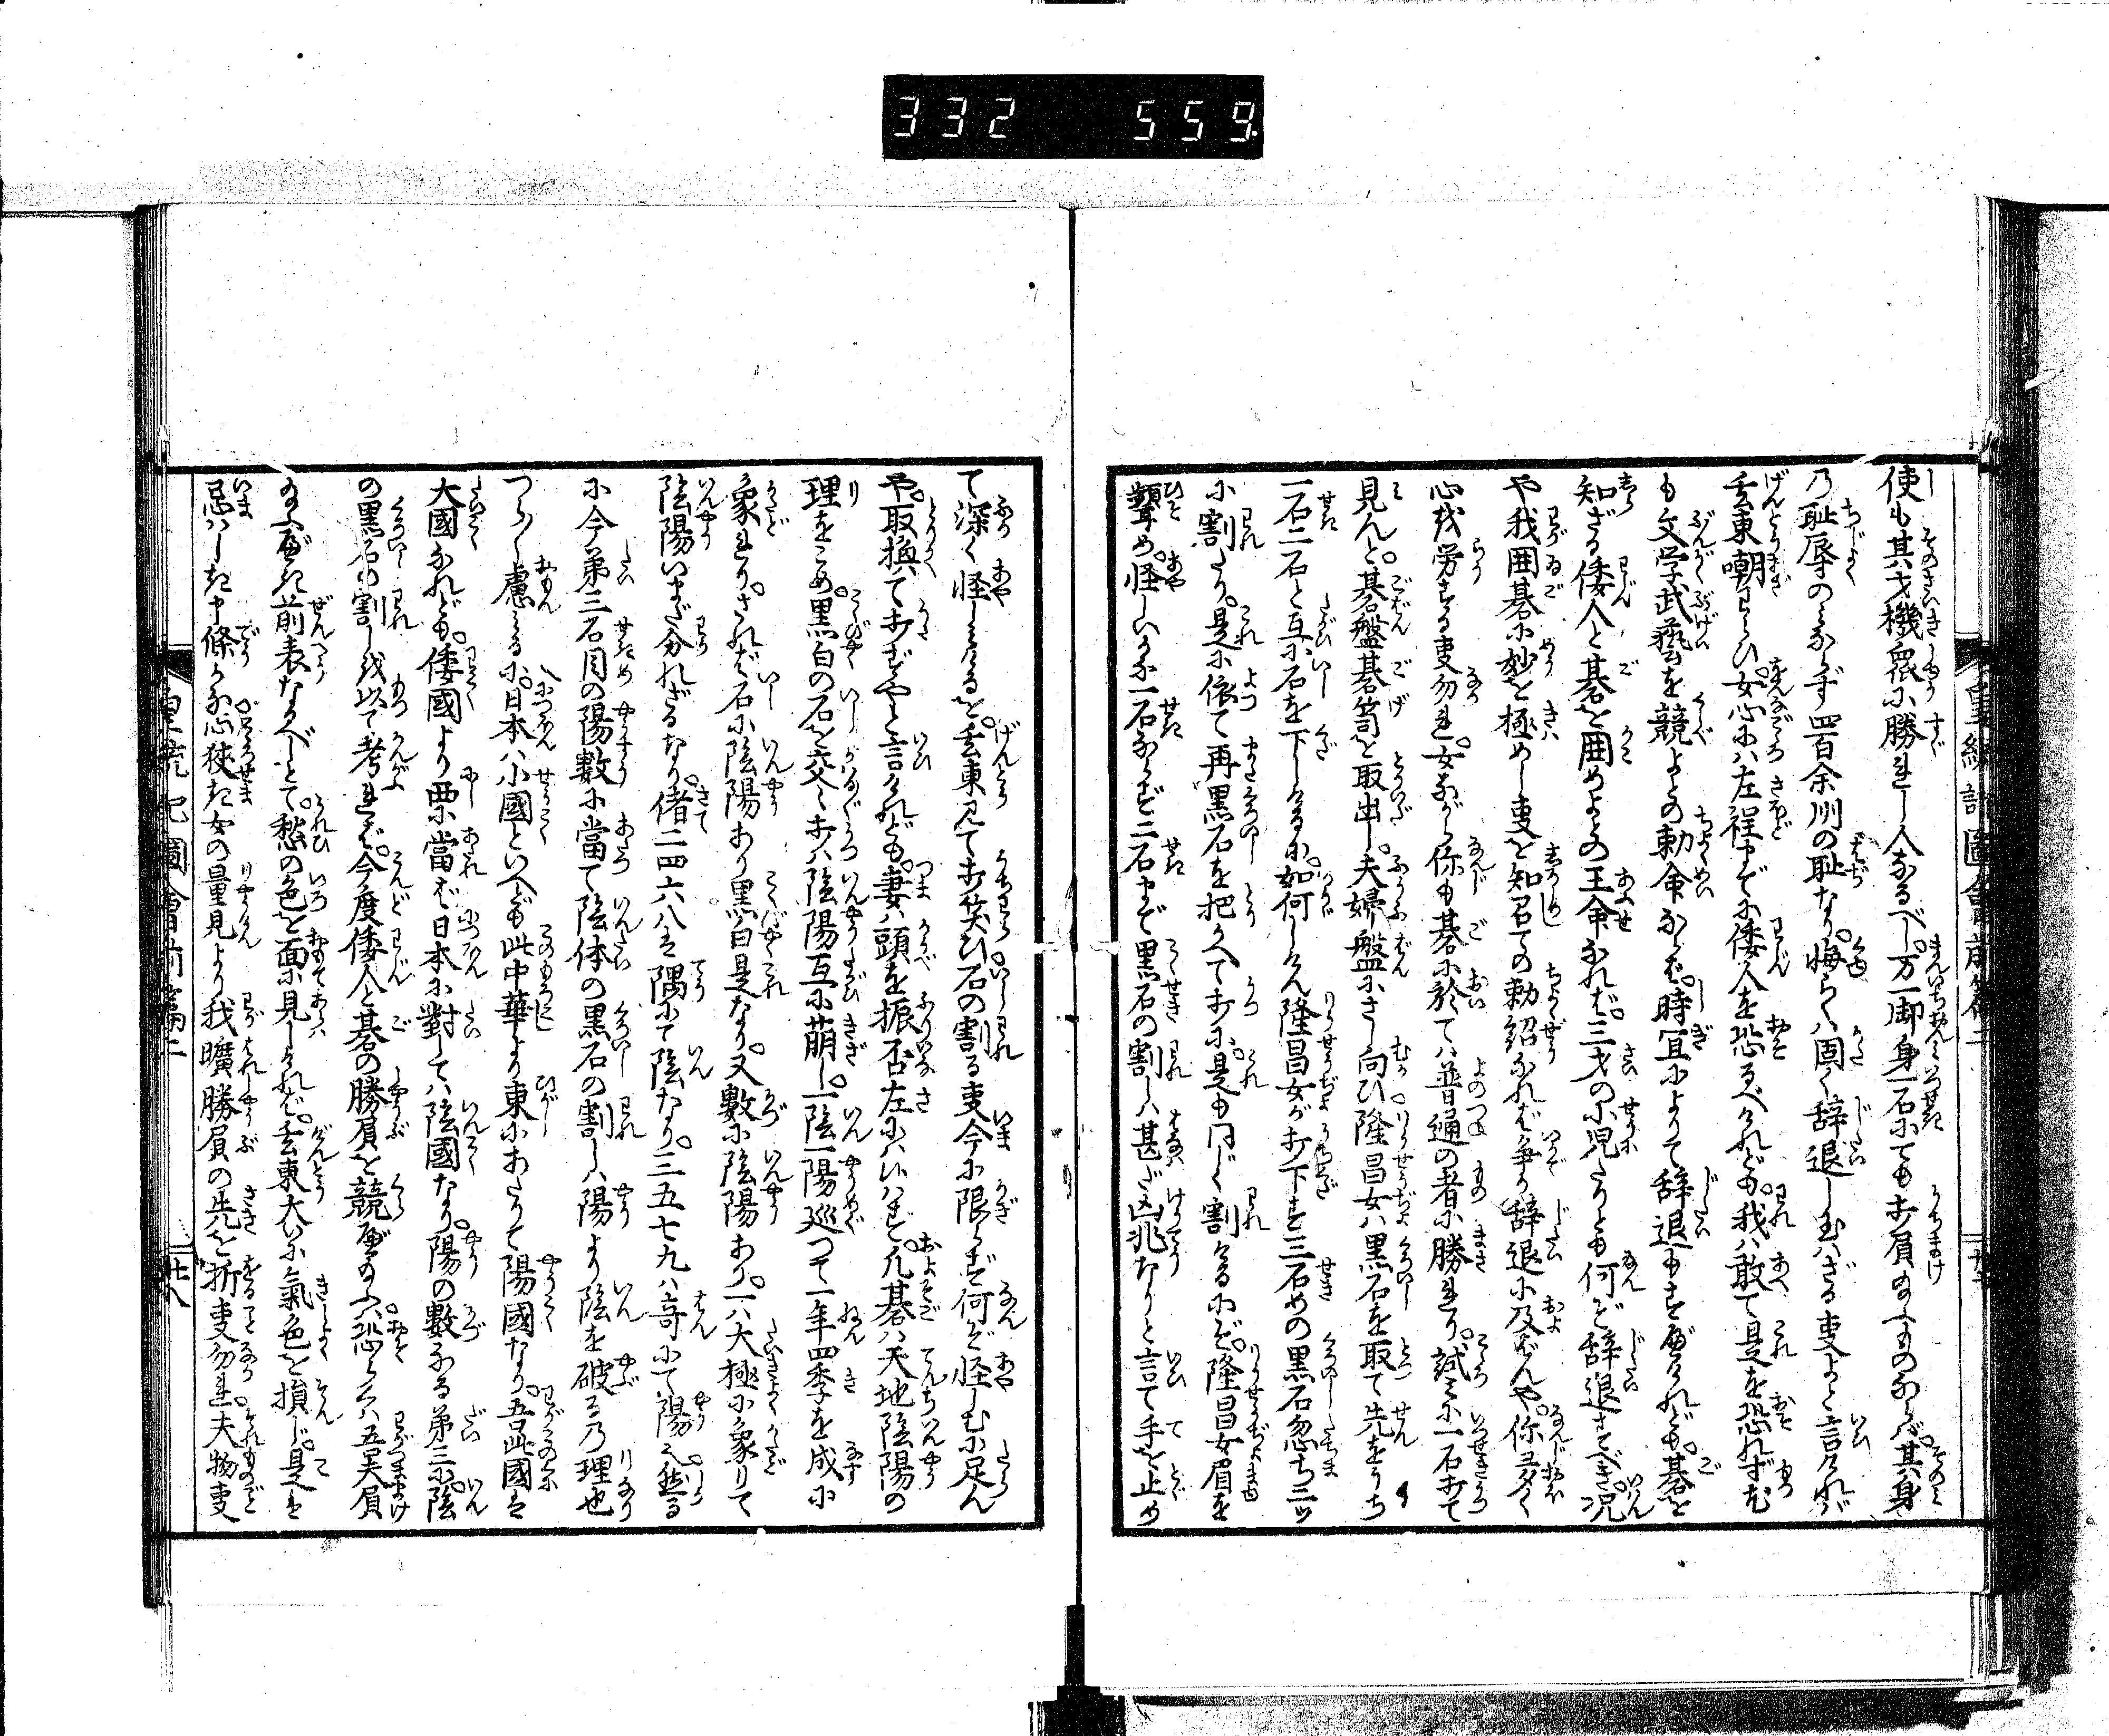 332 559
使も其才機衆に勝れし人なるべし。万一御身一石にても打負給ふものならば。其身
乃耻辱のみならず四百余州の耻なり。悔らくハ固く辞退し玉はざる事よと言けれバ
玄東嘲わらひ。女心にハ左程まで小倭人を恐るべけれども。我ハ敢て是を恐れず尤
も文学武藝を競よとの勅命ならば。時宜によりて辞退もすべけれども。碁を
知ざる倭人と碁を囲めよとの王命なれば。三才の小児たりとも何ど辞退さすべき。况
や我囲碁に妙を極めし事を知召ての勅詔なれば争か辞退に及ばんや。你多く
心を労する事勿れ。女ながら你も碁に於てハ普通の者に勝れり。試みに一石打て
見んと。碁盤碁笥を取出し。夫婦盤にさし向ひ隆昌女ハ黒石を取て先をうち
一石二石と互に石を下しけるに。如何しけん隆昌女が打下す三石めの黒石忽ち二ッ
に割たり。是に依て再黒石を把かへて打に。是も同じく割けるにぞ。隆昌女眉を
顰め。怪しいかな一石ならず二石まで黒石の割しハ甚だ凶兆なりと言て手を止め
て深く怪しみけるを。玄東見て打笑ひ石の割る事今に限らず何ぞ怪しむに足ん
や。取換て打ずやと言けれども。妻ハ頭を振否左にハいはず。凡碁ハ天地陰陽の
理をこめ。黒白の石を交々打ハ陰陽互に萌し。一陰一陽巡つて一年四季を成に
象れり。されば石に陰陽あり黒白是なり。又數に陰陽あり。一ハ大極に象りて
陰陽いまだ分れざるなり。偖二四六八は隅にて陰なり。三五七九ハ奇にて陽之。然る
に今第三石目の陽數に當て陰体の黒石の割しハ陽より陰を破る乃理也
つらつら慮みるに。日本ハ小國といへども此中華より東にあたりて陽國なり。吾此國は
大國なれども。倭國より西に當れば日本に對してハ陰國なり。陽の數なる第三に陰
の黒石の割しを以て考れば。今度倭人と碁の勝負を競べ給ふ。恐らくハ吾夫負
給ふべき前表なるべしとて。愁の色を面に見しければ。玄東大いに氣色を損じ。是は
忌ハしき申條かな心狭き女の量見より我曠勝負の先を折事勿れ。夫物事
皇統記圖會前篇二
廿八